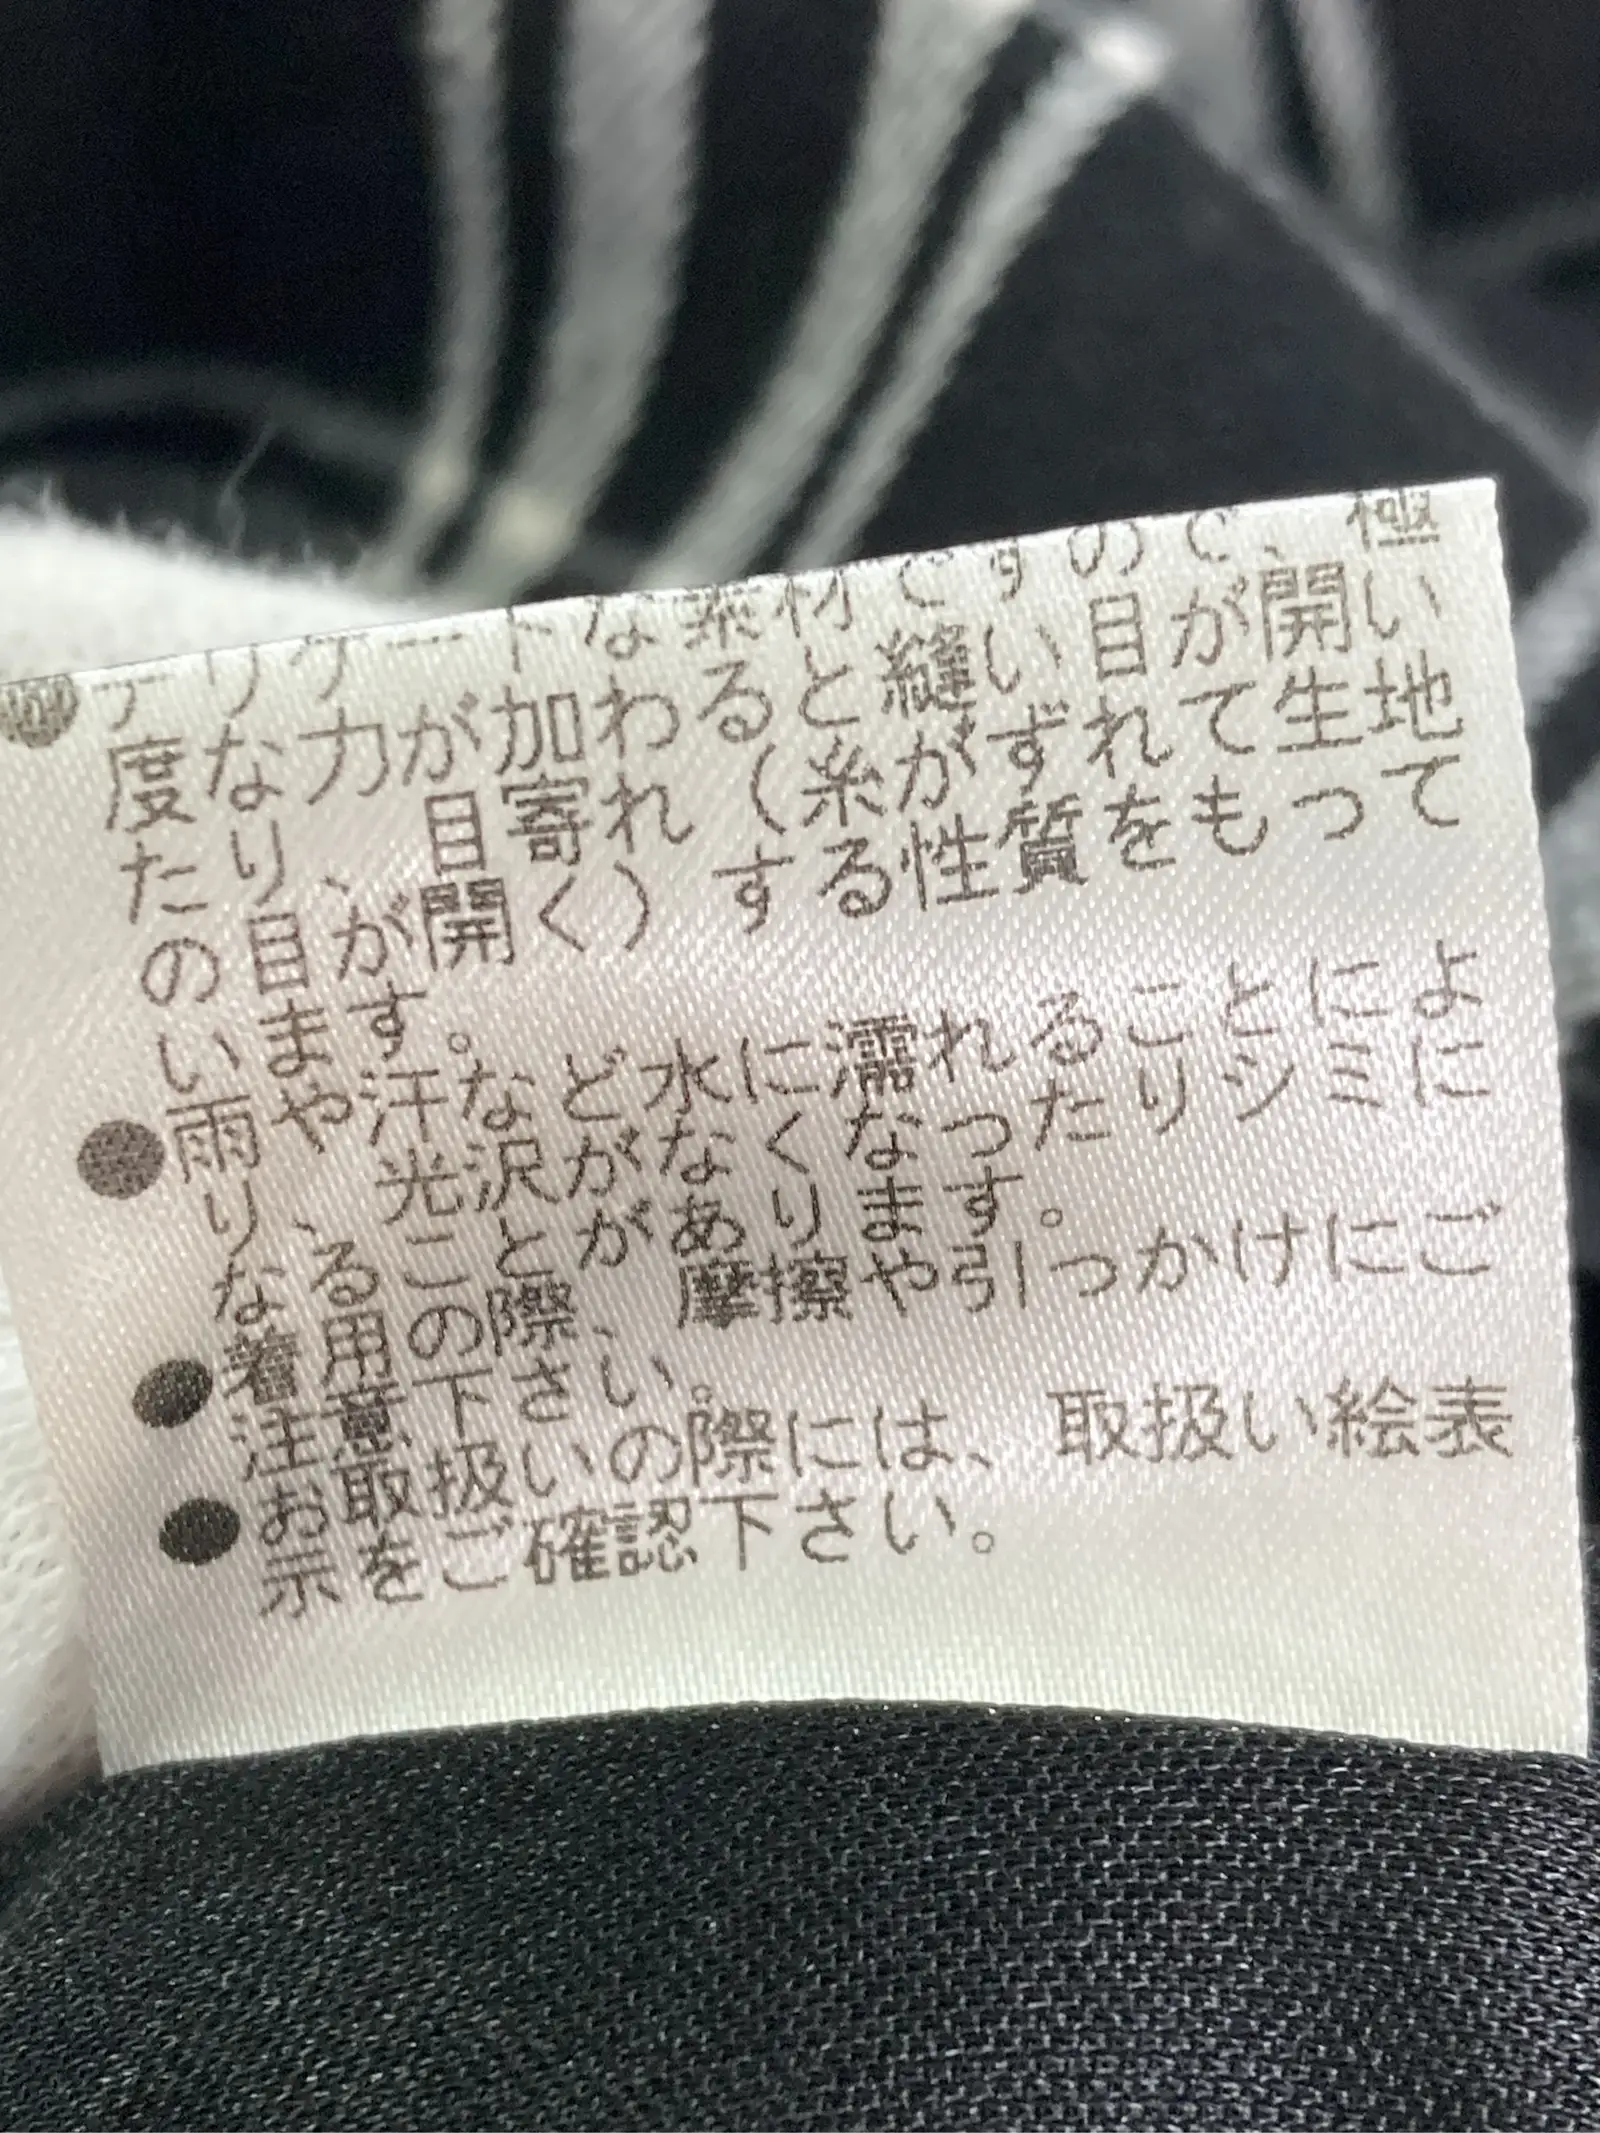 ●デリケートな素材ですので、極
度な力が加わると縫い目が開い
たり、目寄れ（糸がずれて生地
の目が開く）する性質をもって
います。
●雨や汗など水に濡れることによ
り、光沢がなくなったりシミに
なることがあります。
●着用の際、摩擦や引っかけにご
注意下さい。
●お取扱いの際には、取扱い絵表
示をご確認下さい。